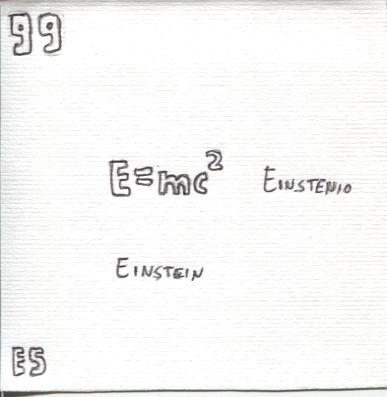 99
E=mc² EINSTENIO
EINSTEIN
ES